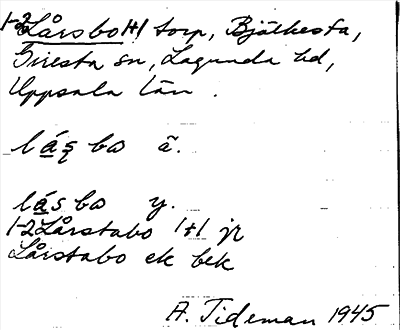 1-2 Lårsbo 1+1 torp, Bjälkesta,
Giresta sn, Lagunda hd,
Uppsala län.
lá̱s̨ bo ä.
lá̱s bo y.
1-2 Lårstabo 1+1 jr
Lårstabo ek bek
A. Tideman 1945